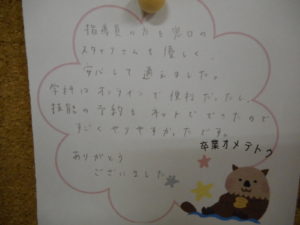 指導員の方も窓口の
スタッフさんも優しく、
安心して通えました。
学科はオンラインで便利だったし、
技能の予約もネットでできたので
すごくやりやすかったです。
ありがとう
ございました
卒業オメデトウ